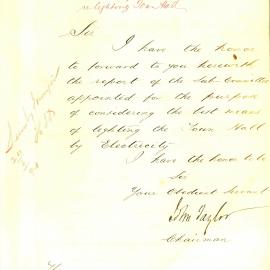 re lighting Town Hall
Sir
I have the honor
to forward to you herewith
the report of the Sub-Committee
appointed for the purpose
of considering the best means
of lighting the Town Hall
by Electricity
I have the honor to be
Sir
Your Obedient Servant
John Taylor
Chairman